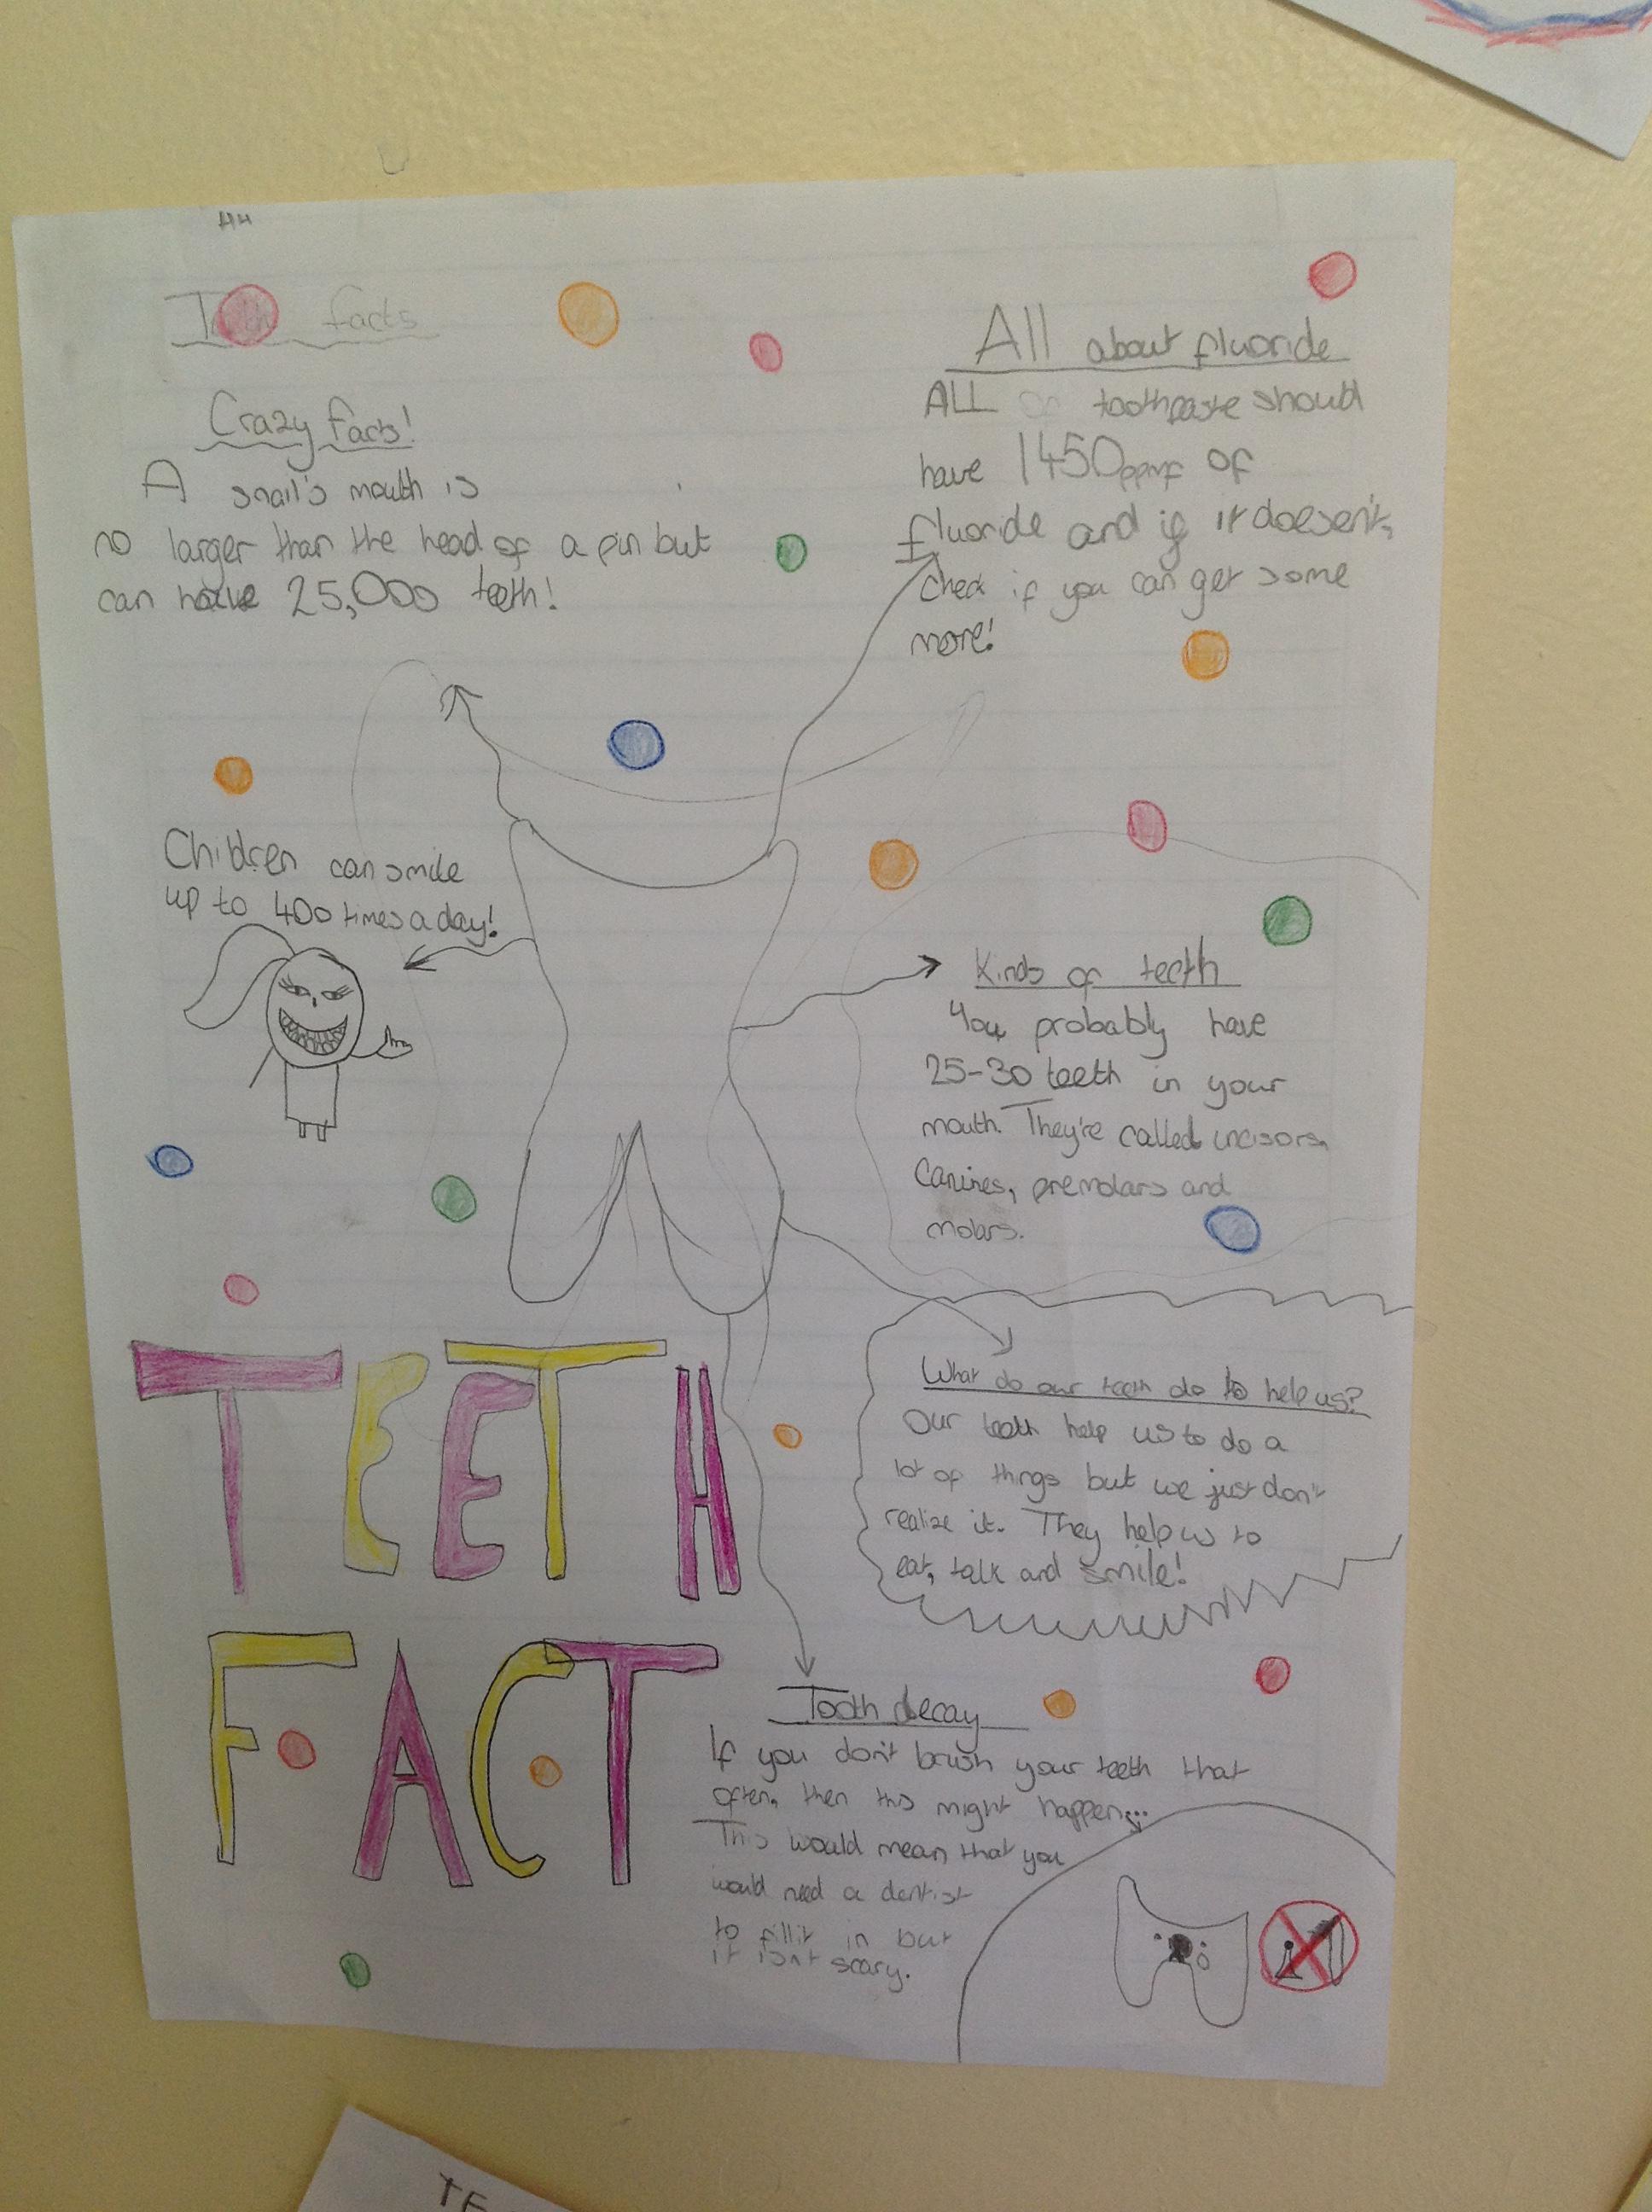 facts
Crazy facts!
A snail's mouth is
no larger than the head of a pin but
can have 25,000 teeth!
All about fluoride
ALL toothpaste should
have 1450ppmf of
fluoride and if it doesen't,
check if you can get some
more!
Children can smile
up to 400 times a day!
Kinds of teeth
You probably have
25-30 teeth in your
mouth. They're called incisors,
Canines, premolars and
molars.
What do our teeth do to help us?
Our teeth help us to do a
lot of things but we just don't
realize it. They help us to
eat, talk and smile!
TEETH
FACT
Tooth decay
If you don't brush your teeth that
often, then this might happen...
This would mean that you
would need a dentist
to fill it in but
it isn't scary.
TE